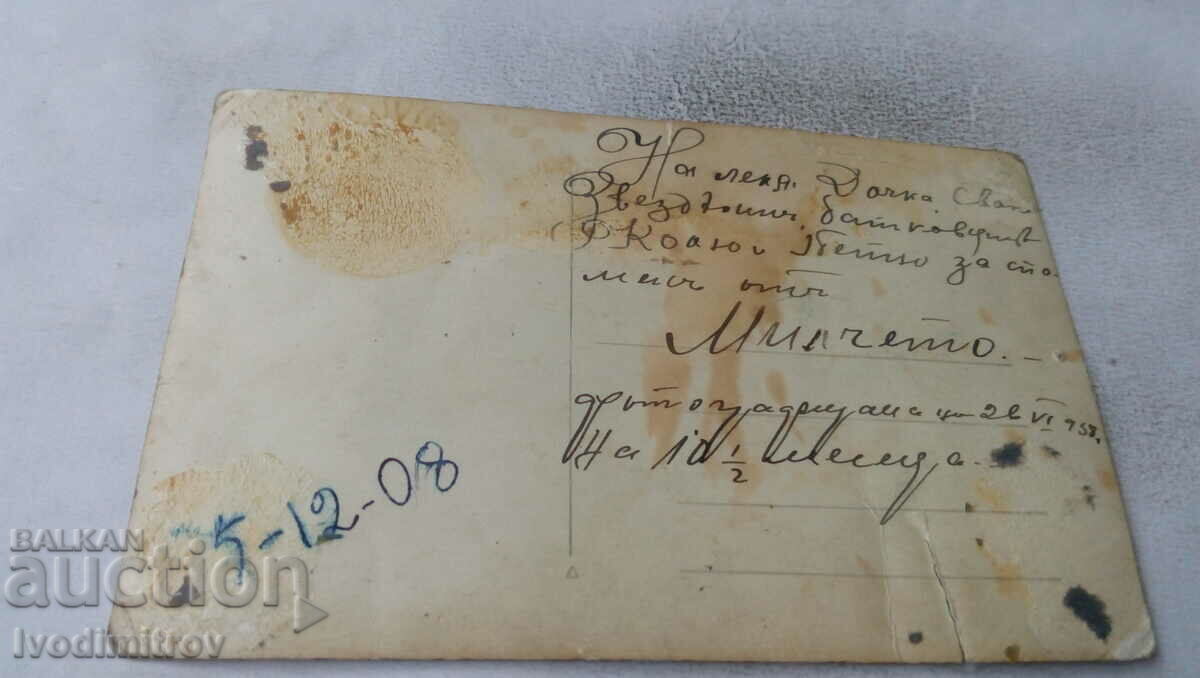 На леля Дочка,
батковцитѣ
Колю и Петю за спо-
менъ отъ
Милчето.
фотографирана на 26 VI 938.
На 10 1/2 месеца.
5-12-08
BALKAN
auction
Ivodimitrov